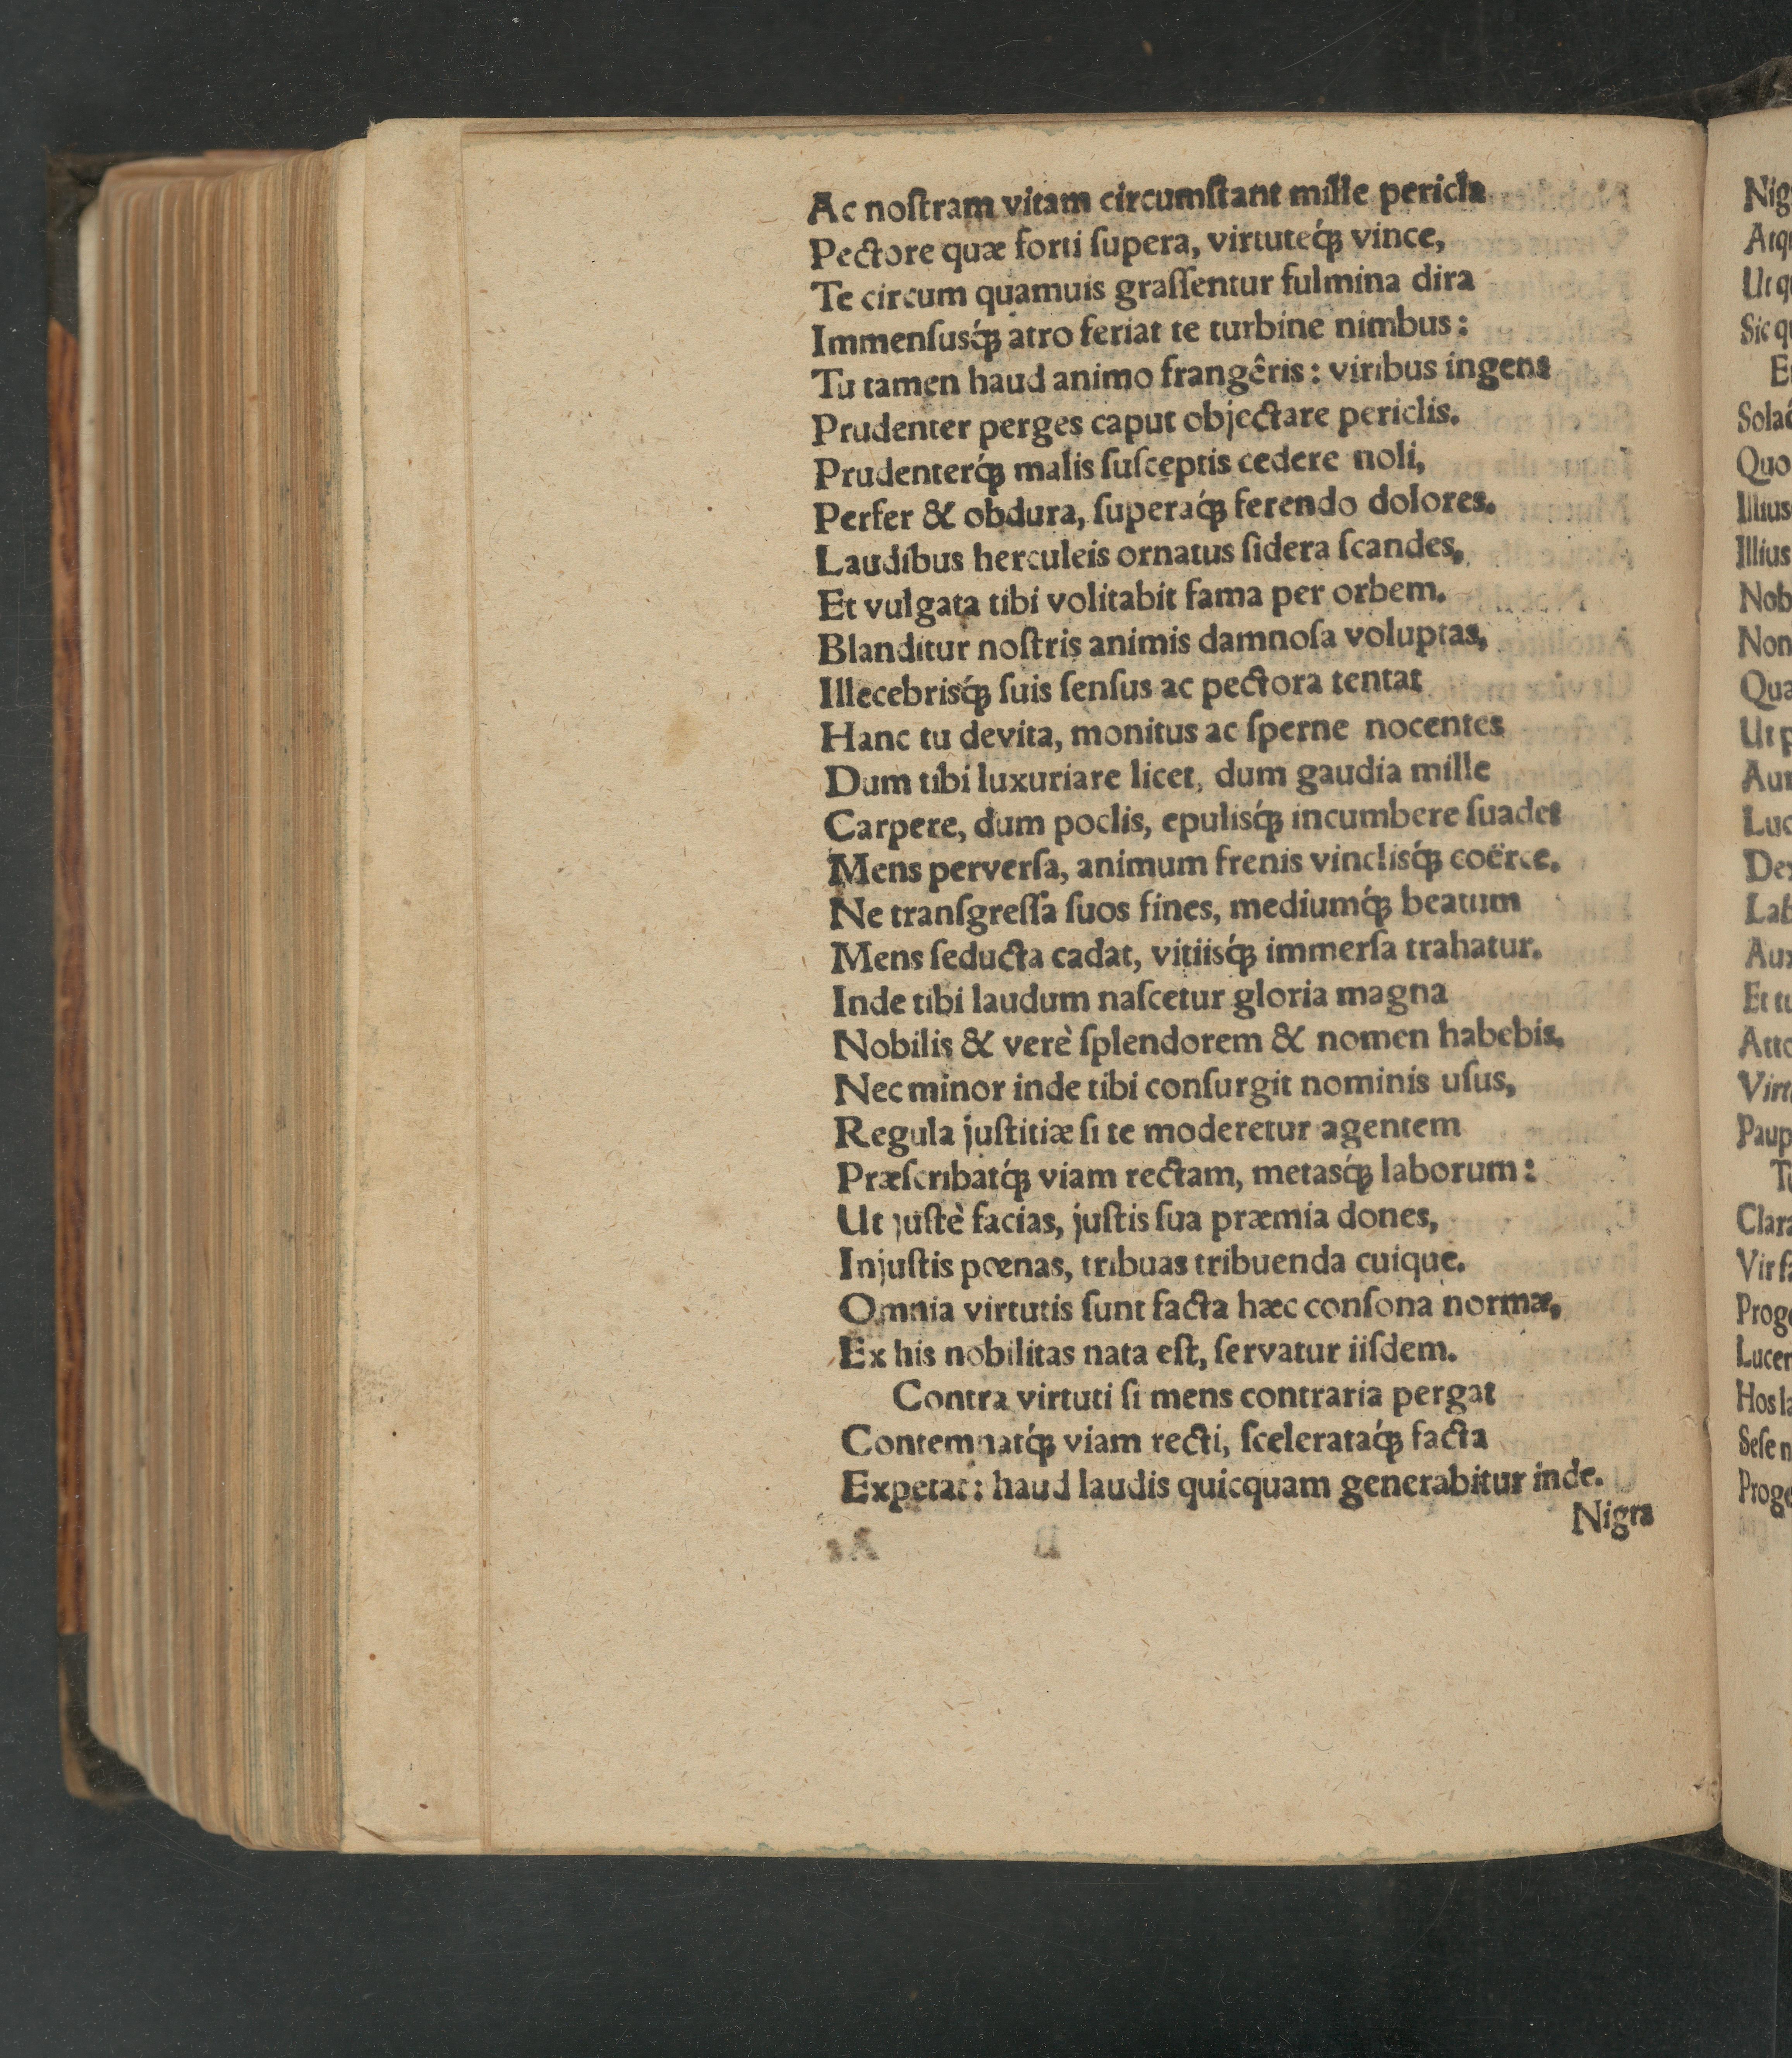 Ac noſtram vitam circumſtant mille pericla
Pectore quæ forti ſupera, virtuteq́; vince,
Te circum quamuis graſſentur fulmina dira
Immenſusq́; atro feriat te turbine nimbus:
Tu tamen haud animo frangêris: viribus ingens
Prudenter perges caput objectare periclis.
Prudenterq́; malis ſuſceptis cedere noli,
Perfer & obdura, ſuperaq́; ferendo dolores.
Laudibus herculeis ornatus ſidera ſcandes,
Et vulgata tibi volitabit fama per orbem.
Blanditur noſtris animis damnoſa voluptas,
Illecebrisq́; ſuis ſenſus ac pectora tentat
Hanc tu devita, monitus ac ſperne nocentes
Dum tibi luxuriare licet, dum gaudia mille
Carpere, dum poclis, epulisq́; incumbere ſuadet
Mens perverſa, animum frenis vinclisq́; coërce.
Ne tranſgreſſa ſuos fines, mediumq́; beatum
Mens ſeducta cadat, vitiisq́; immerſa trahatur.
Inde tibi laudum naſcetur gloria magna
Nobilis & verè ſplendorem & nomen habebis,
Nec minor inde tibi conſurgit nominis uſus,
Regula juſtitiæ ſi te moderetur agentem
Præſcribatq́; viam rectam, metasq́; laborum:
Ut juſtè facias, juſtis ſua præmia dones,
Injuſtis pœnas, tribuas tribuenda cuique.
Omnia virtutis ſunt facta hæc conſona normæ,
Ex his nobilitas nata eſt, ſervatur iiſdem.
Contra virtuti ſi mens contraria pergat
Contemnatq́; viam recti, ſcelerataq́; facta
Expetat: haud laudis quicquam generabitur inde.
Nigra
Nig
Atq
Ut q
Sic q
Quo
Illius
Illius
Nob
Non
Qua
Ut p
Luc
Lab
Et tu
Atto
Virt
Paup
Clara
Vir ſ
Proge
Lucer
Hos la
Seſe n
Proge